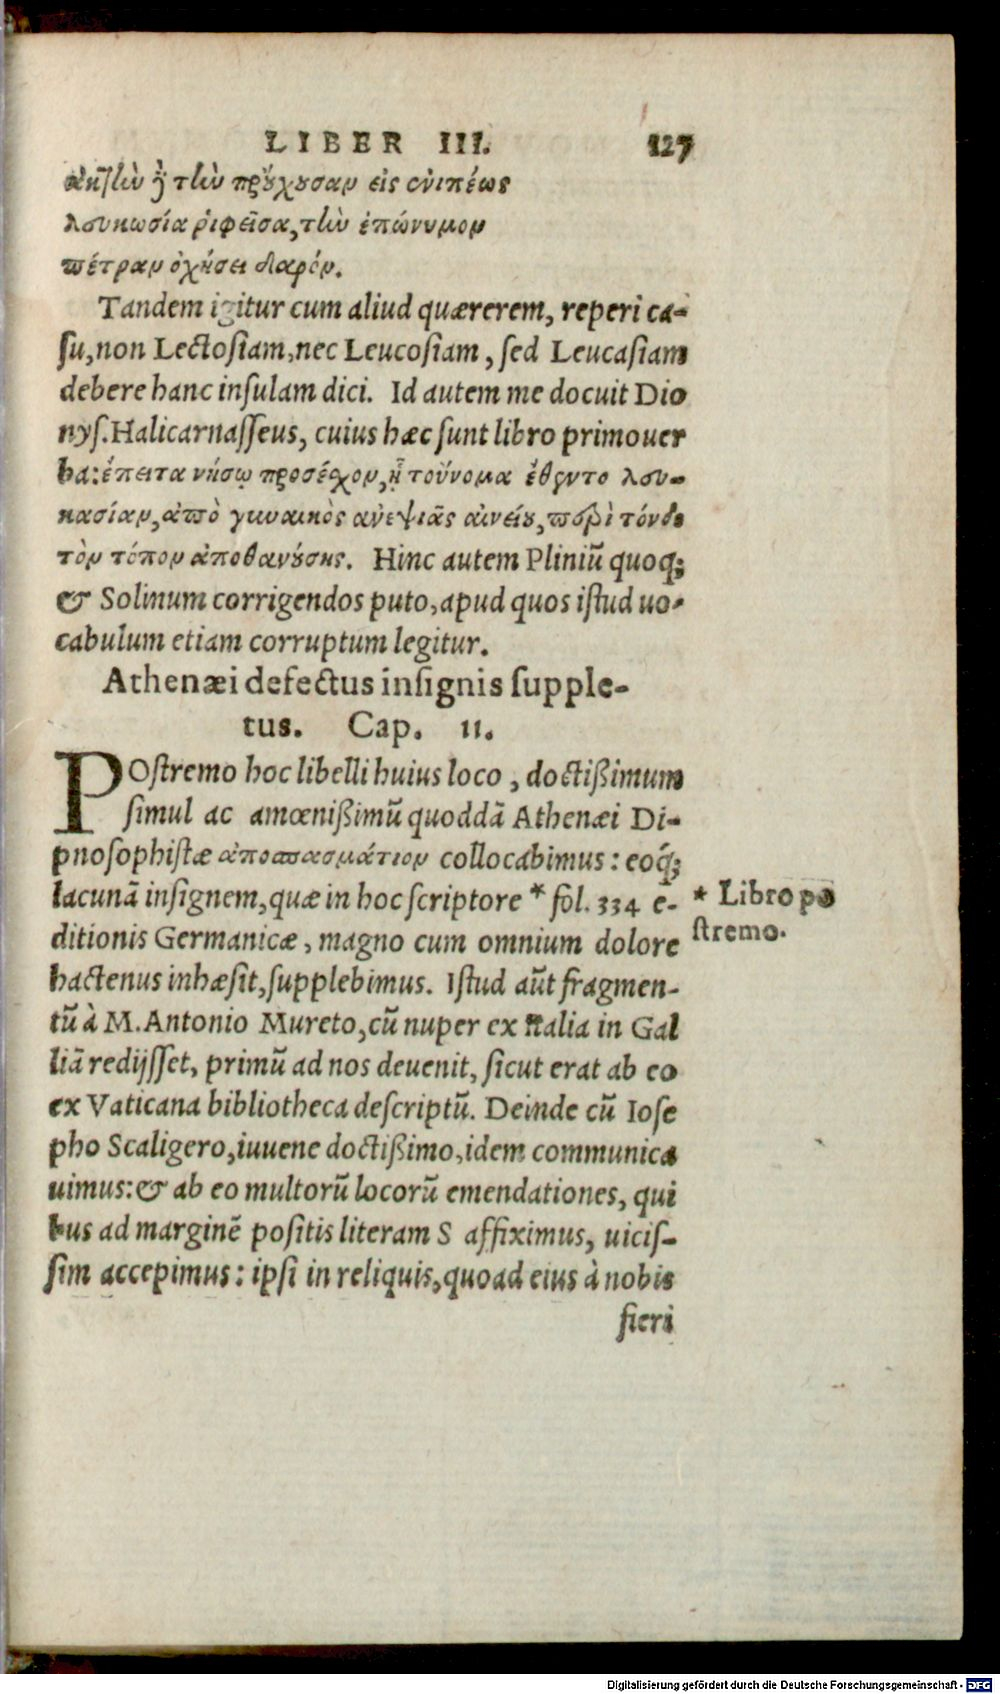 LIBER III. 127
ἀκτὴν ἢ τὴν προὔχουσαν εἰς ἐνιπέως
λευκωσία ῥιφεῖσα, τὴν ἐπώνυμον
πέτραν ὀχήσει δαρόν.
Tandem igitur cum aliud quærerem, reperi ca-
ſu, non Lectoſiam, nec Leucoſiam, ſed Leucaſiam
debere hanc inſulam dici. Id autem me docuit Dio
nyſ. Halicarnaſſeus, cuius hæc ſunt libro primo uer
ba: ἔπειτα νήσῳ προσέσχον, ᾗ τοὔνομα ἔθεντο λευ-
κασίαν, ἀπὸ γυναικὸς ἀνεψιᾶς αἰνείου, περὶ τόνδε
τὸν τόπον ἀποθανούσης. Hinc autem Pliniũ quoq;
& Solinum corrigendos puto, apud quos iſtud uo-
cabulum etiam corruptum legitur.
Athenæi defectus inſignis ſupple-
tus. Cap. II.
POſtremo hoc libelli huius loco, doctißimum
ſimul ac amœnißimũ quoddã Athenæi Di-
pnoſophiſtæ ἀποσπασμάτιον collocabimus: eoq́;
lacunã inſignem, quæ in hoc ſcriptore * fol. 334 e-
* Libro po
ditionis Germanicæ, magno cum omnium dolore
ſtremo.
hactenus inhæſit, ſupplebimus. Iſtud aũt fragmen-
tũ à M. Antonio Mureto, cũ nuper ex Italia in Gal
liã redijſſet, primũ ad nos deuenit, ſicut erat ab eo
ex Vaticana bibliotheca deſcriptũ. Deinde cũ Ioſe
pho Scaligero, iuuene doctißimo, idem communica
uimus: & ab eo multorũ locorũ emendationes, qui
bus ad marginẽ poſitis literam S affiximus, uiciſ-
ſim accepimus: ipſi in reliquis, quoad eius à nobis
fieri
Digitalisierung gefördert durch die Deutsche Forschungsgemeinschaft - DFG